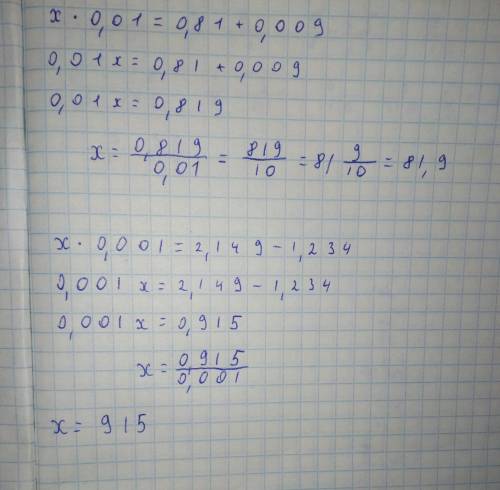 x · 0,01 = 0,81 + 0,009
0,01 x = 0,81 + 0,009
0,01 x = 0,819
x = 0,819/0,01 = 819/10 = 81 9/10 = 81,9
x · 0,001 = 2,149 - 1,234
0,001 x = 2,149 - 1,234
0,001 x = 0,915
x = 0,915/0,001
x = 915